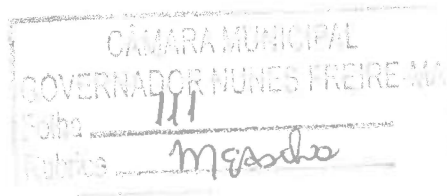 CÂMARA MUNICIPAL
GOVERNADOR NUNES FREIRE-MA
Folha 111
Rubrica